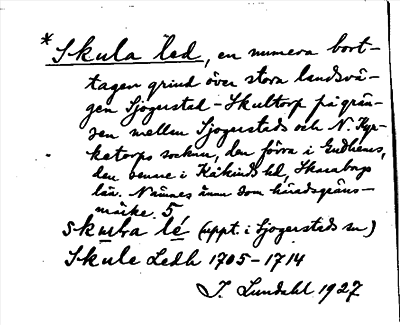 * Skula led, en numera bort-
tagen grind över stora landsvä-
gen Sjogerstad - Skultorp på grän-
sen mellen Sjogerstads och N. Kyr-
ketorps socknar, den förra i Gudhems,
den senare i Kåkinds hd, Skaraborgs
län. Nämnes ännu som häradsgräns-
märke. 5
skulra lé (uppt. i Sjogerstads sn)
Skule Ledh 1705-1714
J. Lundahl 1927